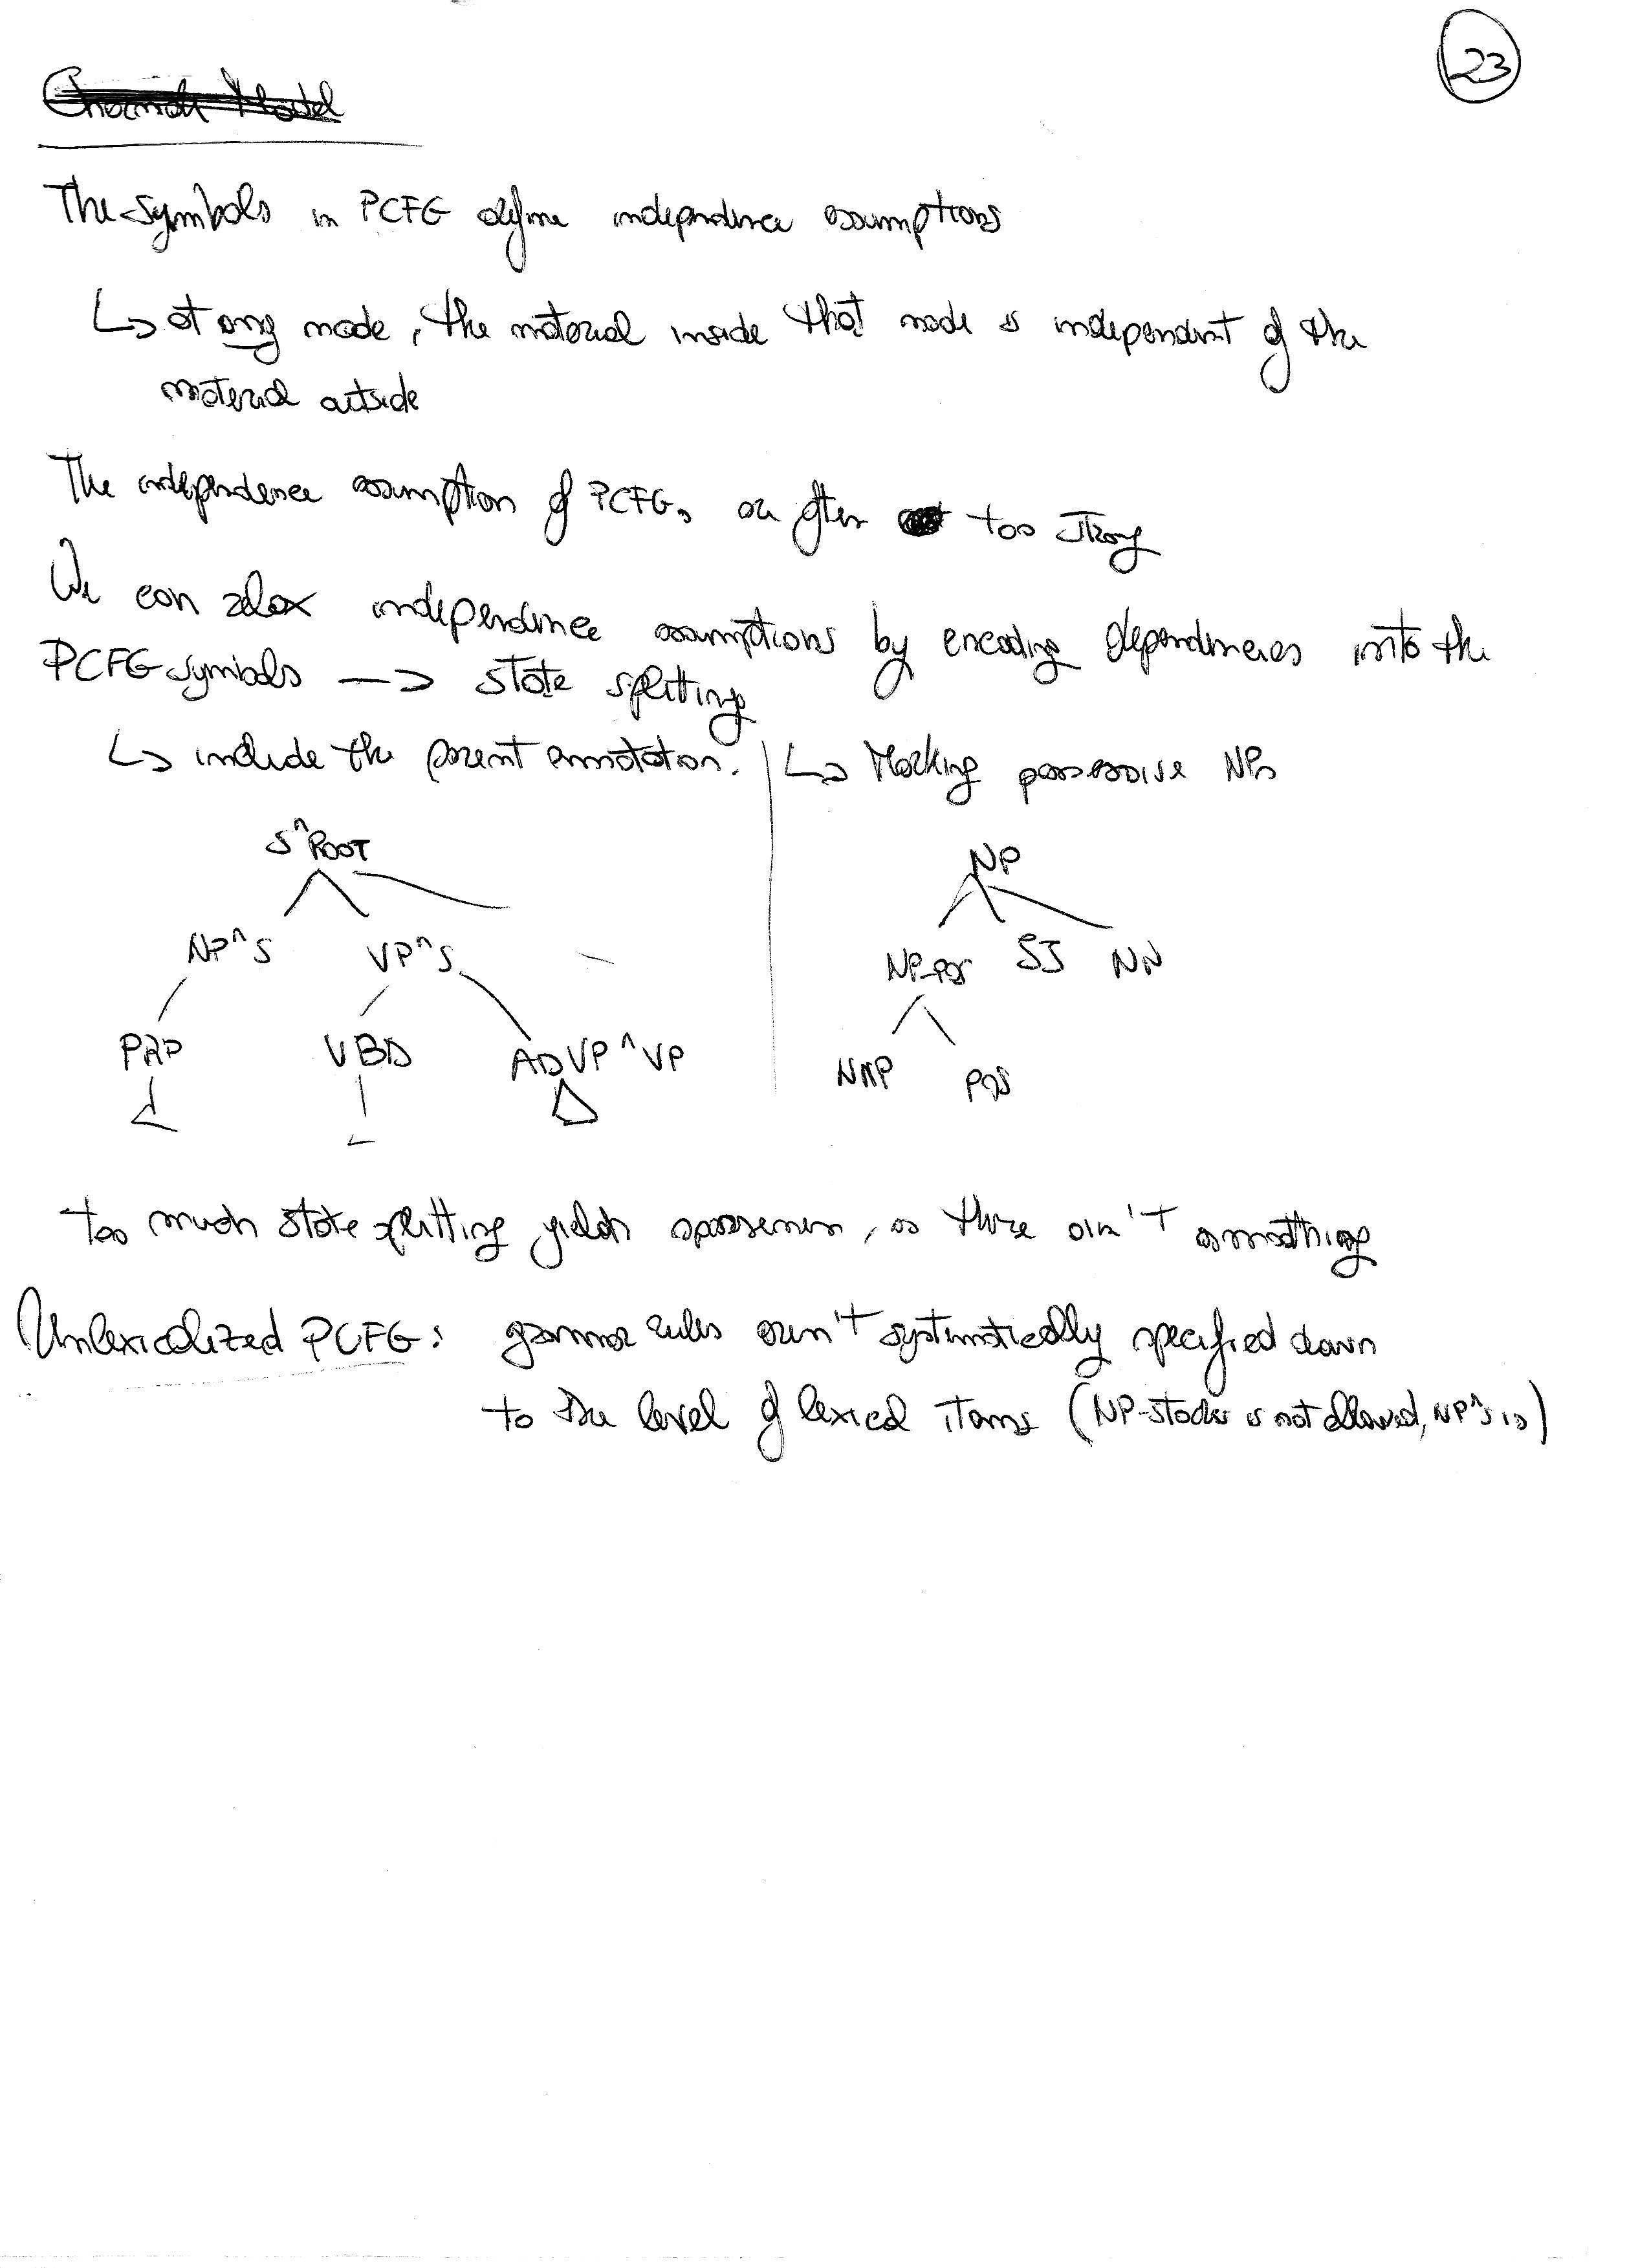 23
The symbols in PCFG define independence assumptions
↳ at any node, the material inside that node is independent of the
material outside
The independence assumption of PCFGs are often too strong
We can relax independence assumptions by encoding dependencies into the
PCFG symbols —> state splitting
↳ include the parent annotation. | ↳ Marking possessive NPs
S^ROOT
NP
NP^S VP^S
NP-POS JJ NN
PRP VBD ADVP^VP
NNP POS
too much state splitting yields sparseness, as there ain't smoothing
Unlexicalized PCFG: grammar rules aren't systematically specified down
to the level of lexical items (NP-stocks is not allowed, NP^S is)